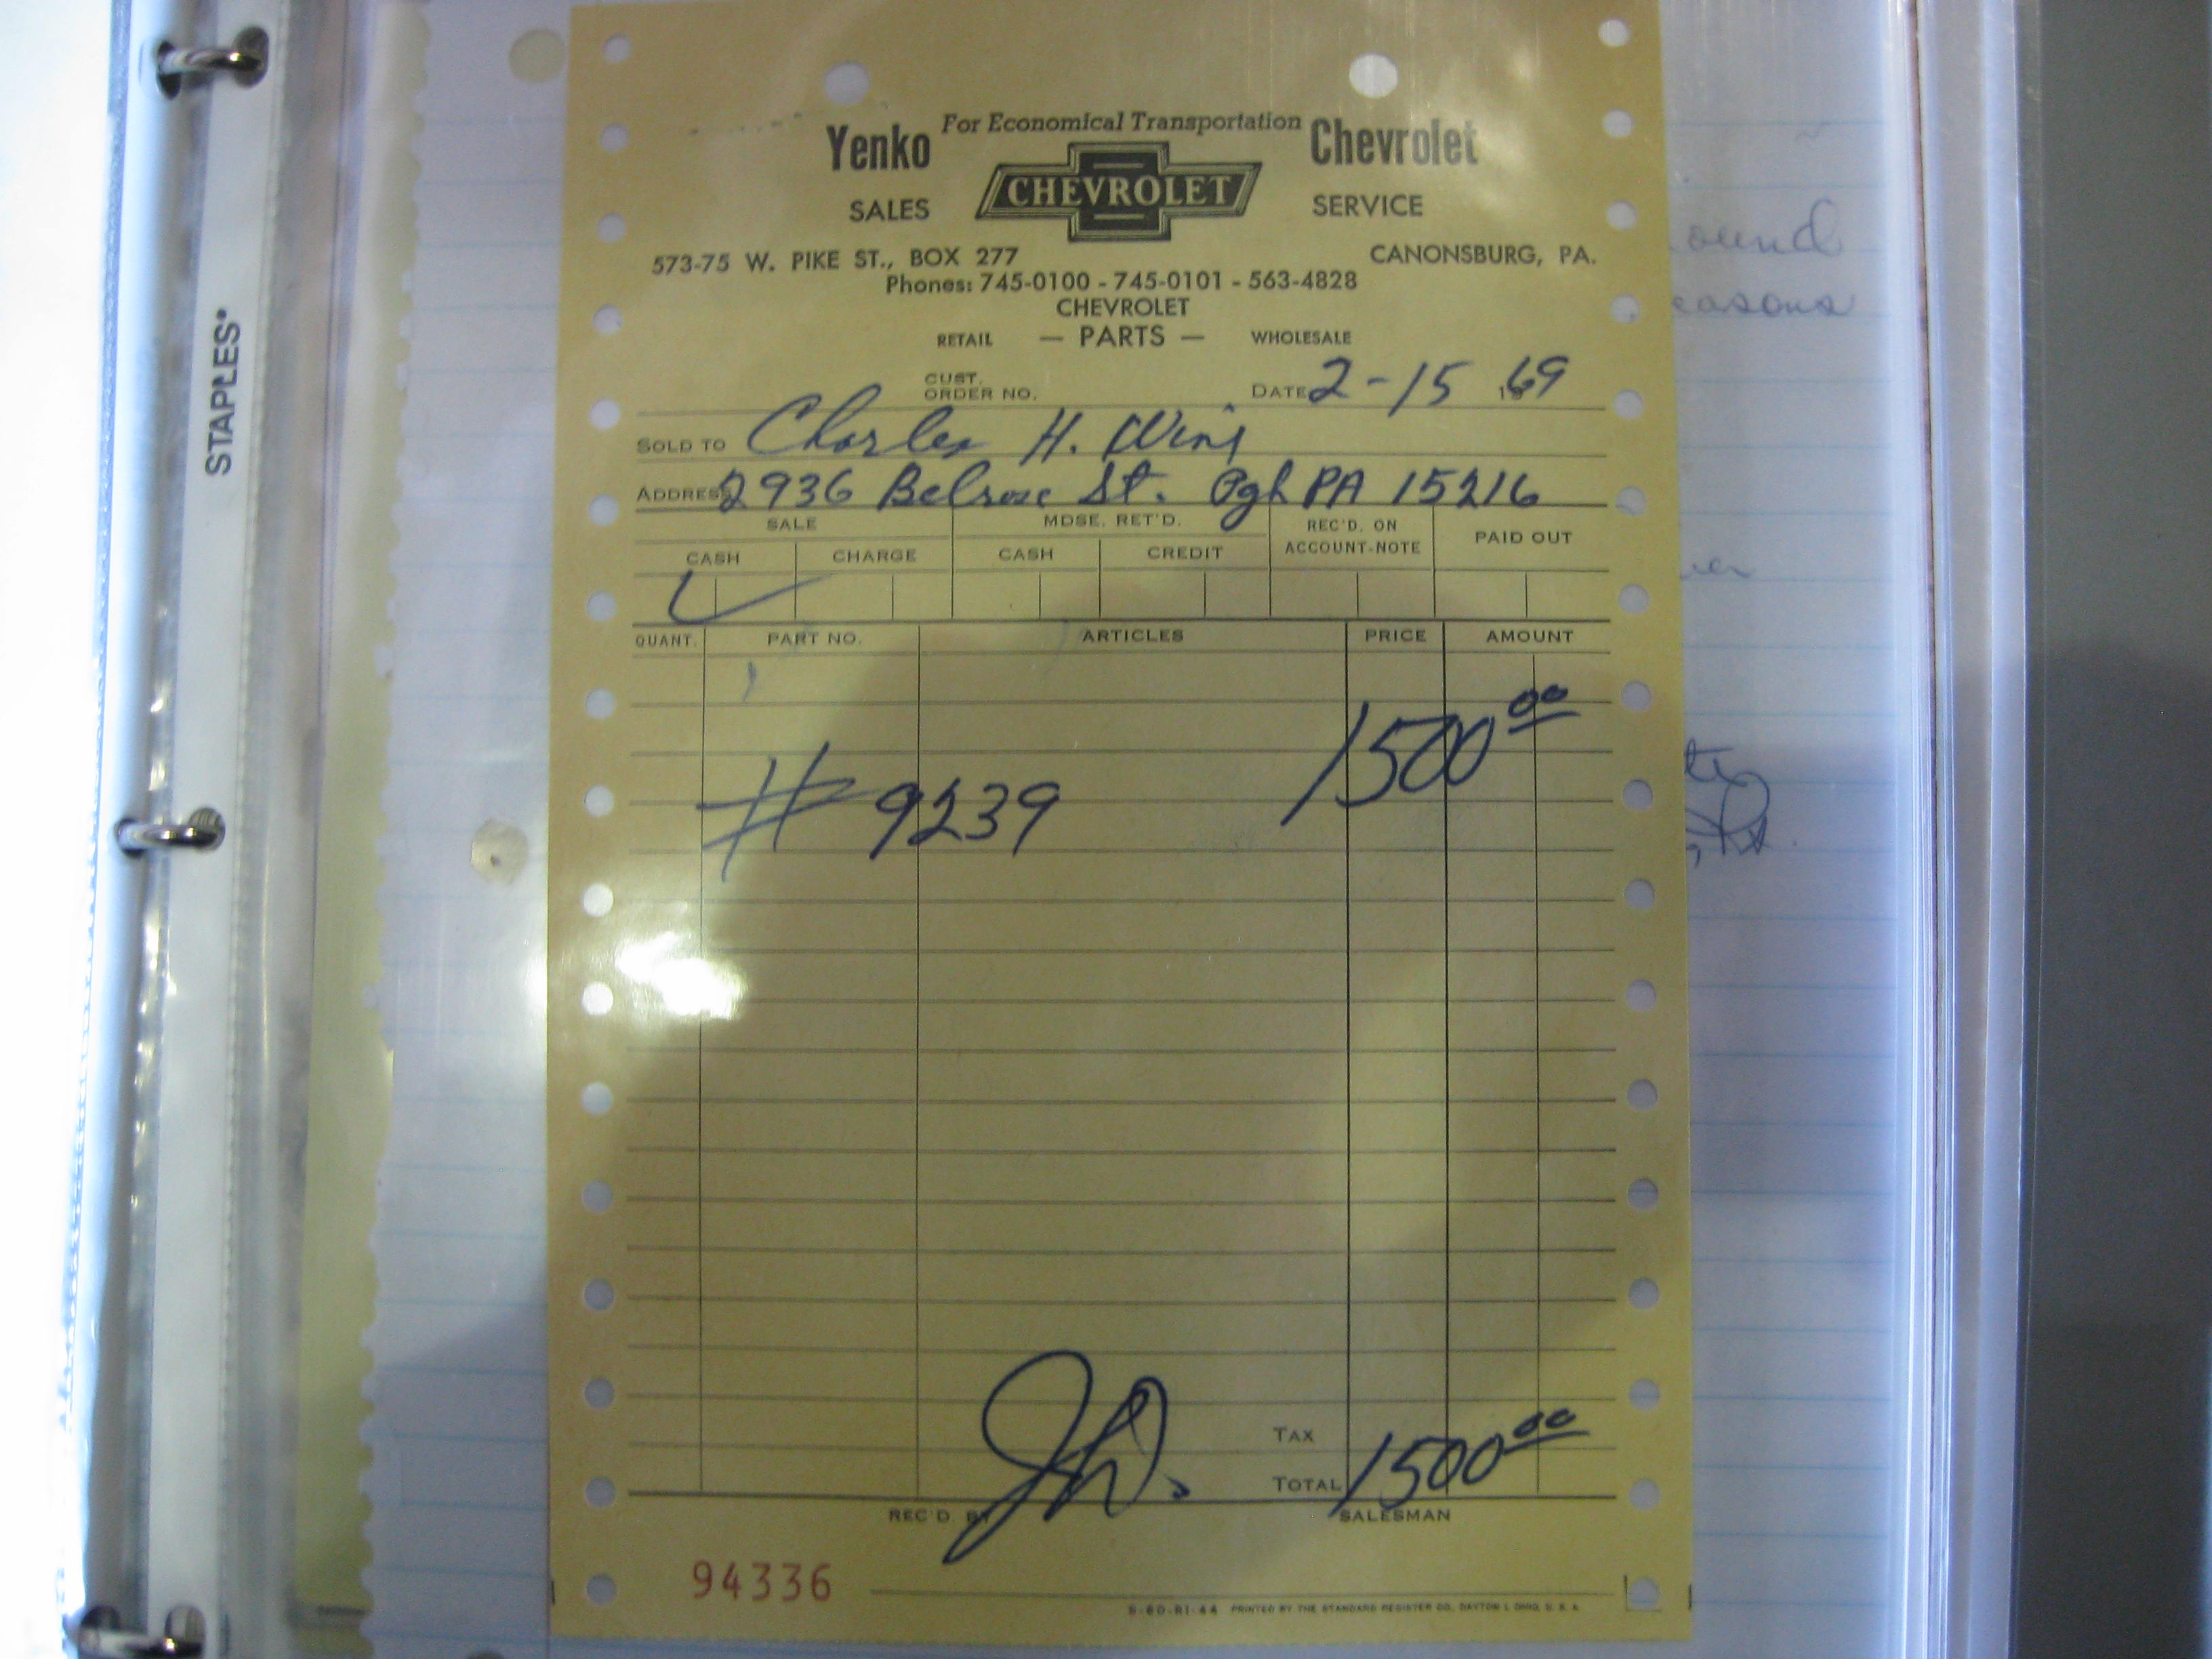 STAPLES®
For Economical Transportation
Yenko CHEVROLET Chevrolet
SALES SERVICE
573-75 W. PIKE ST., BOX 277 CANONSBURG, PA.
Phones: 745-0100 - 745-0101 - 563-4828
CHEVROLET
RETAIL — PARTS — WHOLESALE
CUST. ORDER NO. DATE 2-15 1969
SOLD TO Charles H. Wing
ADDRESS 2936 Belrose St. Pgh PA 15216
SALE MDSE. RET'D. REC'D. ON ACCOUNT-NOTE PAID OUT
CASH CHARGE CASH CREDIT
QUANT. PART NO. ARTICLES PRICE AMOUNT
1500 00
# 9239
TAX
TOTAL 1500 00
REC'D. BY SALESMAN
94336
PRINTED BY THE STANDARD REGISTER CO., DAYTON 1, OHIO, U. S. A.